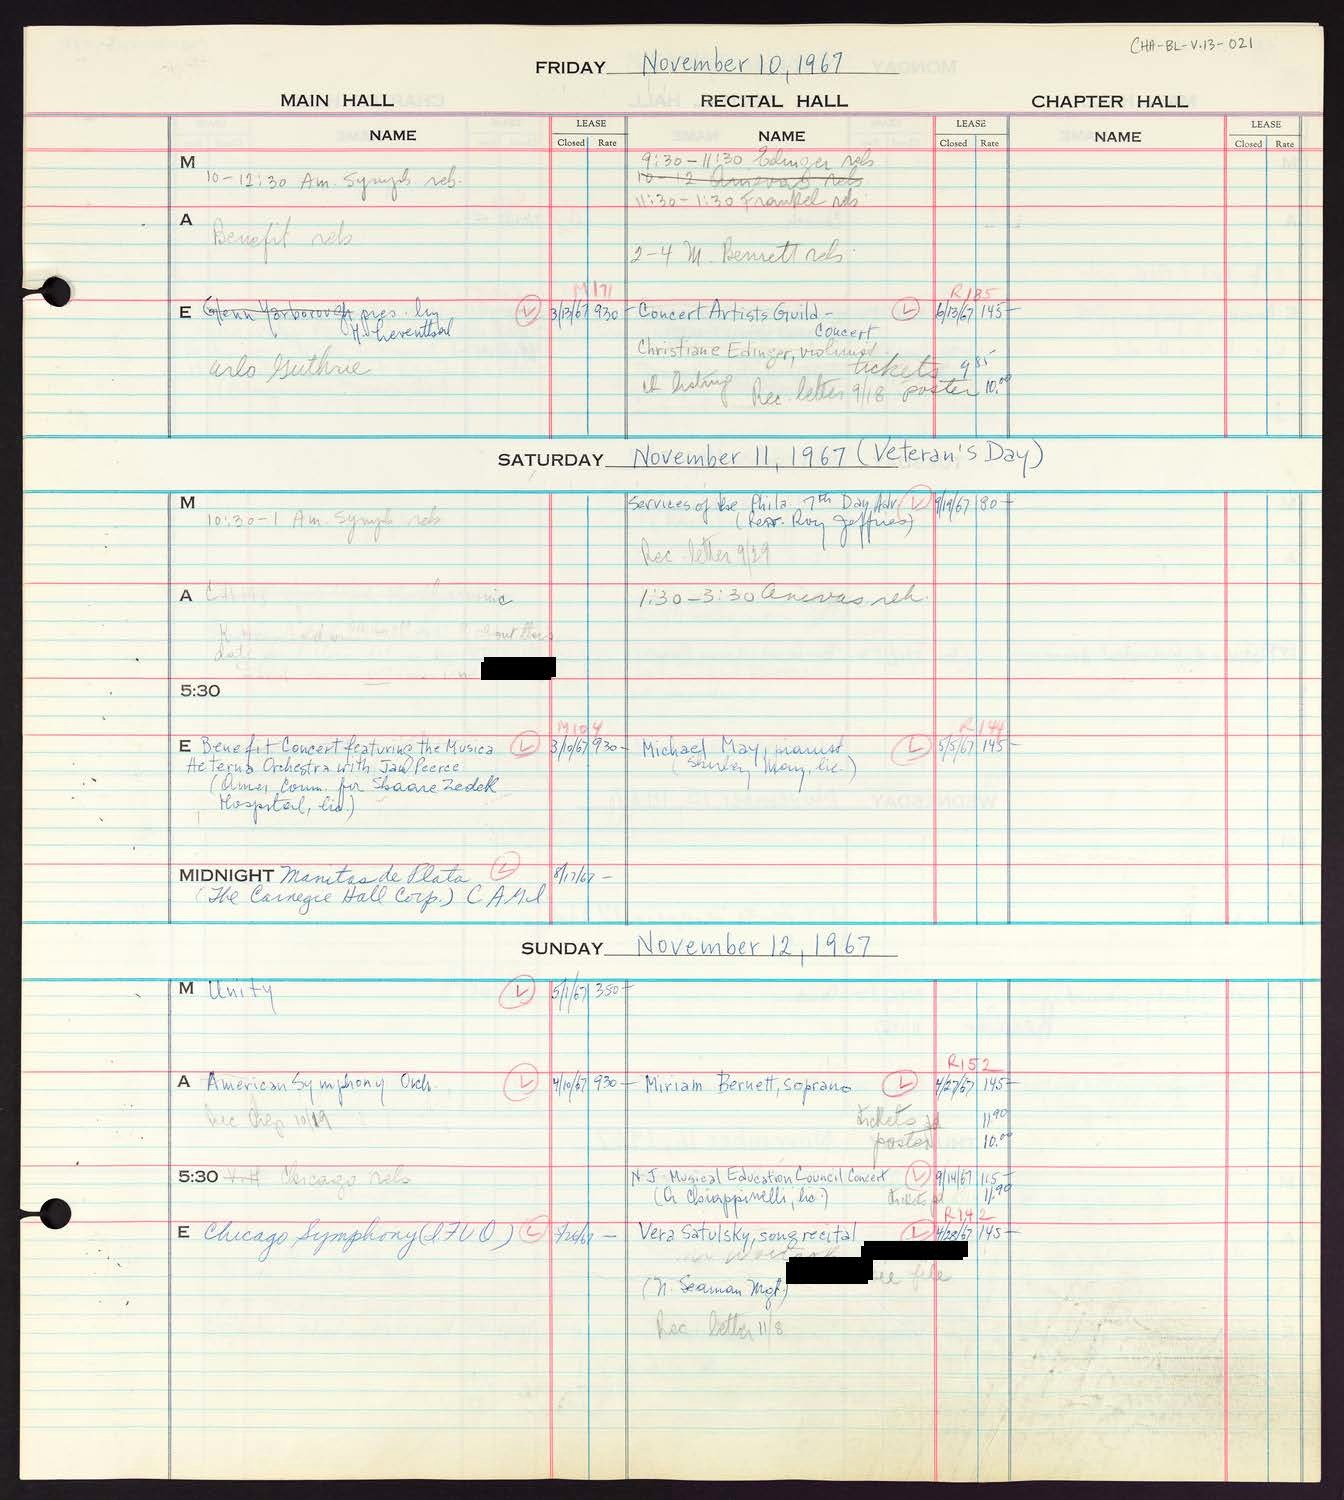 CHA-BL-V.13-021
FRIDAY November 10, 1967
MAIN HALL RECITAL HALL CHAPTER HALL
NAME LEASE Closed Rate NAME LEASE Closed Rate NAME LEASE Closed Rate
M
10-12:30 Am. Symph reh.
9:30-11:30 Edinger reh
10-12 Anievas reh
11:30-1:30 Frankel reh
A
Benefit reh
2-4 M. Bennett reh.
M171
E Glenn Yarborough pres. by
H. Leventhal
3/13/67 930-
arlo Guthrie
R185
Concert Artists Guild -
Concert
6/13/67 145-
Christiane Edinger, violinist
tickets 9 85
listing Rec. letter 9/18 poster 10.00
SATURDAY November 11, 1967 (Veteran's Day)
M
10:30-1 Am. Symph reh
Services of the Phila. 7th Day Adv. L 9/19/67 80-
(Rev. Roy Jeffries)
Rec. letter 9/29
A
1:30-3:30 Anievas reh.
5:30
M104
E Benefit Concert featuring the Musica L 3/10/67 930-
Aeterna Orchestra with Jan Peerce
(Amer. Comm. for Shaare Zedek
Hospital, lic.)
R144
Michael May, pianist L 5/5/67 145-
(Shirley May, lic.)
MIDNIGHT Manitas de Plata L 8/17/67 -
(The Carnegie Hall Corp.) C.A.M.I.
SUNDAY November 12, 1967
M Unity L 5/1/67 350-
A American Symphony Orch. L 4/10/67 930-
Rec Chg 10/19
R152
Miriam Bernett, soprano L 4/27/67 145-
tickets 11 90
poster 10.00
5:30 Chicago reh
N.J. Musical Education Council Concert L 9/14/67 115-
(A Chiappinelli, lic.) tickets 11.90
E Chicago Symphony (IFUO) L
R142
Vera Satulsky, song recital L 4/28/67 145-
file
(N. Seaman Mgt.)
Rec letter 11/8